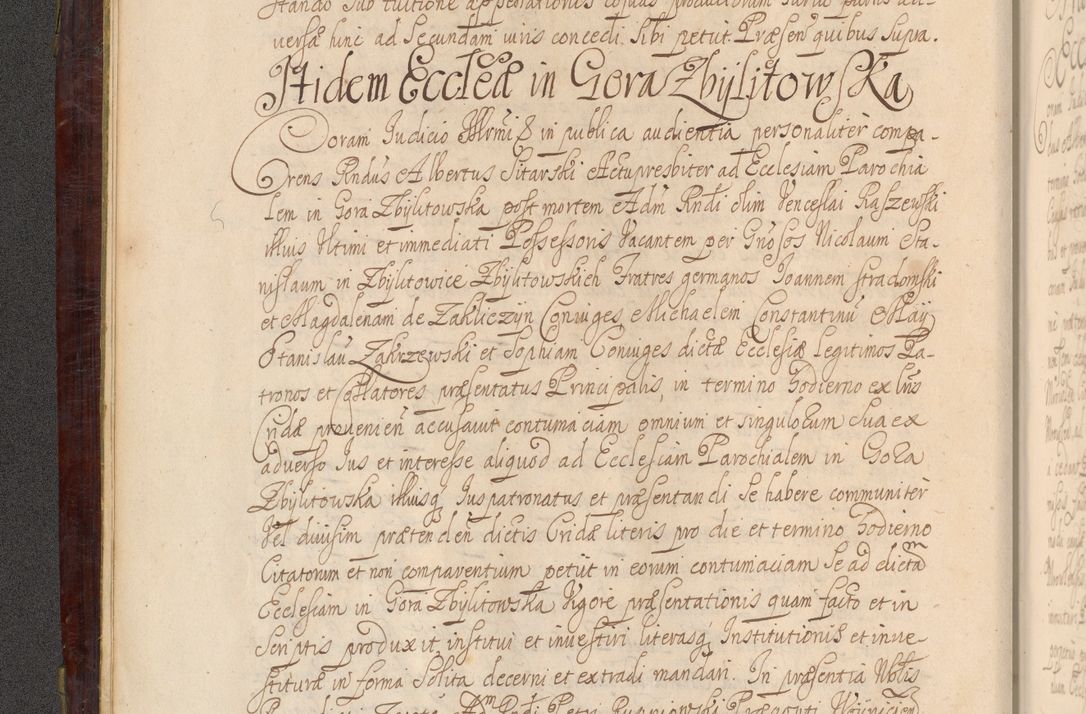 versæ hinc ad Secundam viris concedi Sibi petut. Præsen quibus Supra.
Itidem Eccleæ in Gora Zbÿlitowska
Coram Iudicio Illrmi & in publica audientia personaliter compa-
rens Rndus Albertus Sitarski Actupresbiter ad Ecclesiam Parochia
lem in Gora Zbylitowska post mortem Adm Rndi olim Venceslai Raszewski
illius Ultimi et immediati Possessoris Vacantem per Gnosos Nicolaum Sta-
nislaum in Zbylitowice Zbylitowskich Fratres germanos Ioannem Stradomski
et Magdalenam de Zakliczÿn Coniuges Michaelem Constantinu Maÿ
Stanislau Zakrzewski et Sophiam Coniuges dictæ Ecclesiæ legitimos Pa-
tronos et Collatores præsentatus Principalis, in termino Hodierno ex lris
Cridæ provenien accusavit contumaciam omnium et singulorum Sua ex
adverso Ius et interesse aliquod ad Ecclesiam Parochialem in Gora
Zbylitowska illiusq Iuspatronatus et præsentandi Se habere communiter
vel divisim prætenden dictis Cridæ literis pro die et termino Hodierno
Citatorum et non comparentium petut in eorum contumaciam Se ad dictam
Ecclesiam in Gora Zbylitowska Vigore præsentationis quam facto et in
Scriptis produxit institui et investiri literasq Institutionis et inve-
stituræ in forma Solita decerni et extradi mandari. In præsentia Nobilis